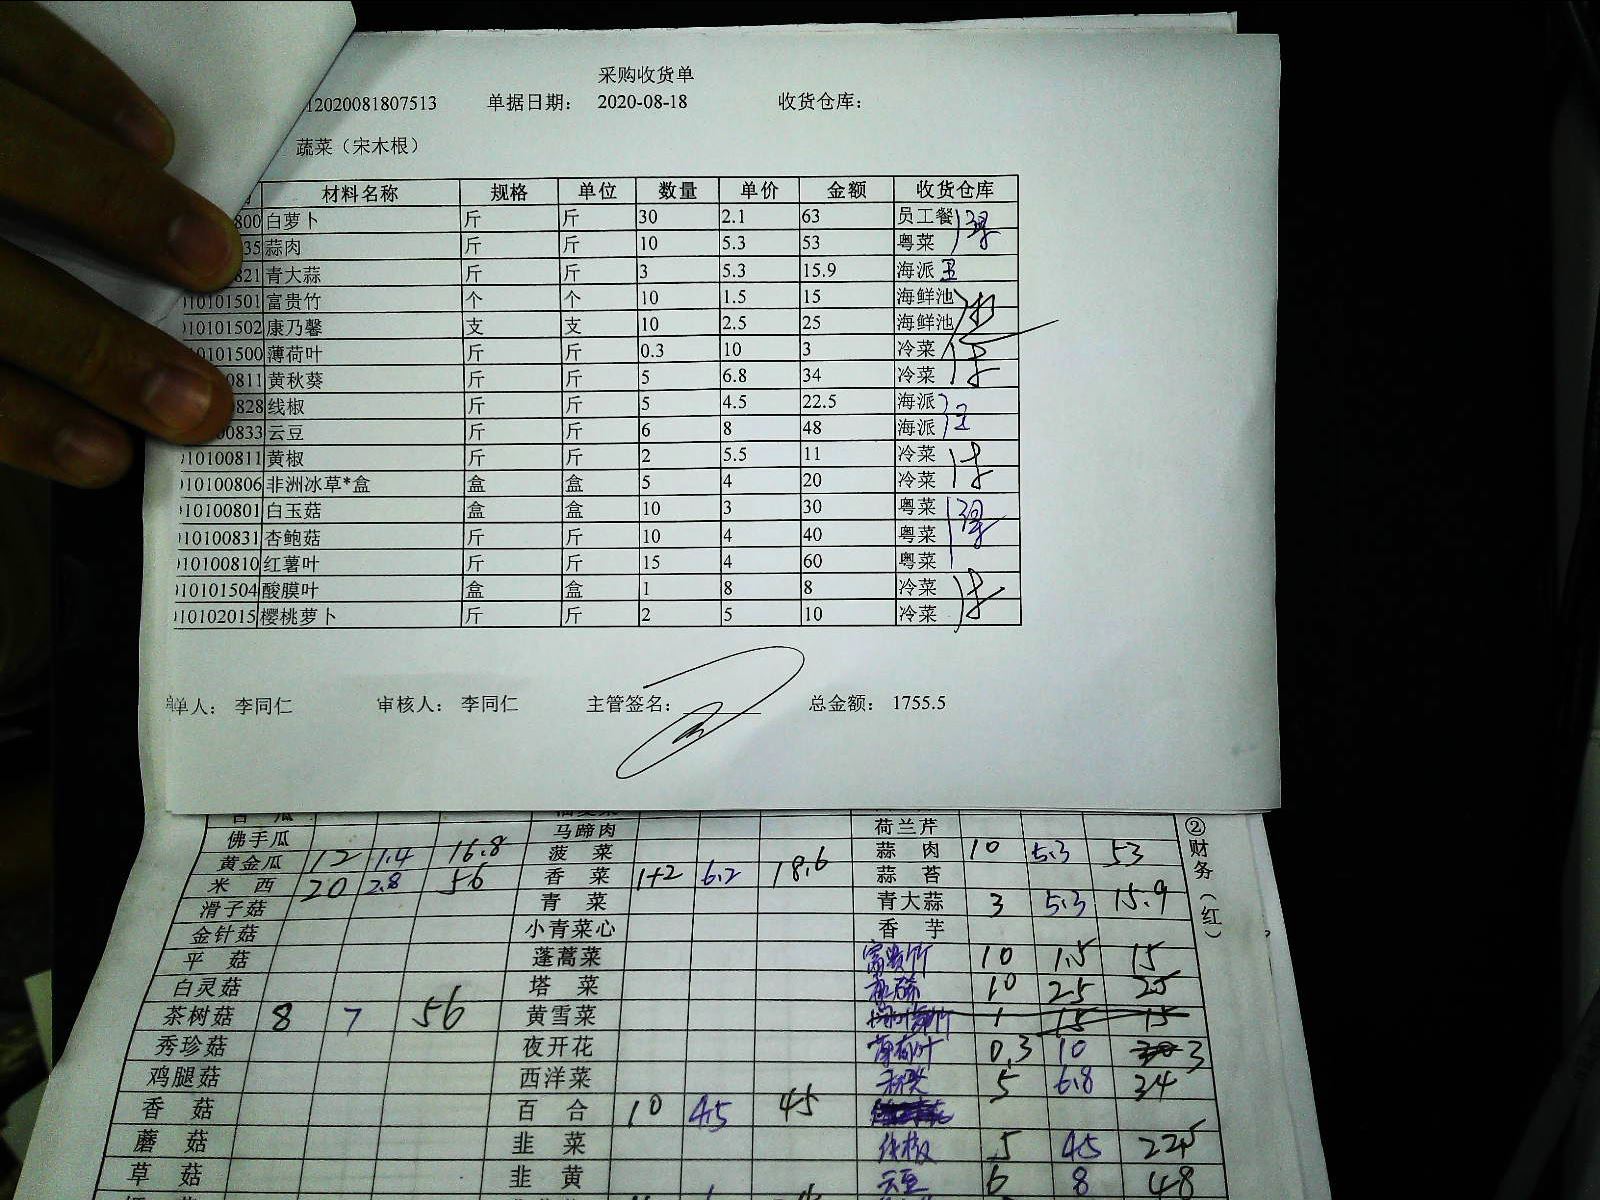 采购收货单
12020081807513 单据日期： 2020-08-18 收货仓库：
蔬菜（宋木根）
材料名称 规格 单位 数量 单价 金额 收货仓库
800 白萝卜 斤 斤 30 2.1 63 员工餐
35 蒜肉 斤 斤 10 5.3 53 粤菜
821 青大蒜 斤 斤 3 5.3 15.9 海派
10101501 富贵竹 个 个 10 1.5 15 海鲜池
10101502 康乃馨 支 支 10 2.5 25 海鲜池
0101500 薄荷叶 斤 斤 0.3 10 3 冷菜
0811 黄秋葵 斤 斤 5 6.8 34 冷菜
828 线椒 斤 斤 5 4.5 22.5 海派
00833 云豆 斤 斤 6 8 48 海派
010100811 黄椒 斤 斤 2 5.5 11 冷菜
010100806 非洲冰草*盒 盒 盒 5 4 20 冷菜
010100801 白玉菇 盒 盒 10 3 30 粤菜
010100831 杏鲍菇 斤 斤 10 4 40 粤菜
010100810 红薯叶 斤 斤 15 4 60 粤菜
010101504 酸膜叶 盒 盒 1 8 8 冷菜
010102015 樱桃萝卜 斤 斤 2 5 10 冷菜
单人： 李同仁 审核人： 李同仁 主管签名： 总金额： 1755.5
佛手瓜 马蹄肉 荷兰芹
黄金瓜 12 1.4 16.8 菠菜 蒜肉 10 5.3 53
米西 20 2.8 56 香菜 1+2 6.2 18.6 蒜苔
滑子菇 青菜 青大蒜 3 5.3 15.9
金针菇 小青菜心 香芋
平菇 蓬蒿菜 富贵竹 10 1.5 15
白灵菇 塔菜 10 25 25
茶树菇 8 7 56 黄雪菜 1 15 15
秀珍菇 夜开花 薄荷叶 0.3 10 3
鸡腿菇 西洋菜 5 6.8 34
香菇 百合 10 45 45
蘑菇 韭菜 线椒 5 45 225
草菇 韭黄 云豆 6 8 48
②财务（红）